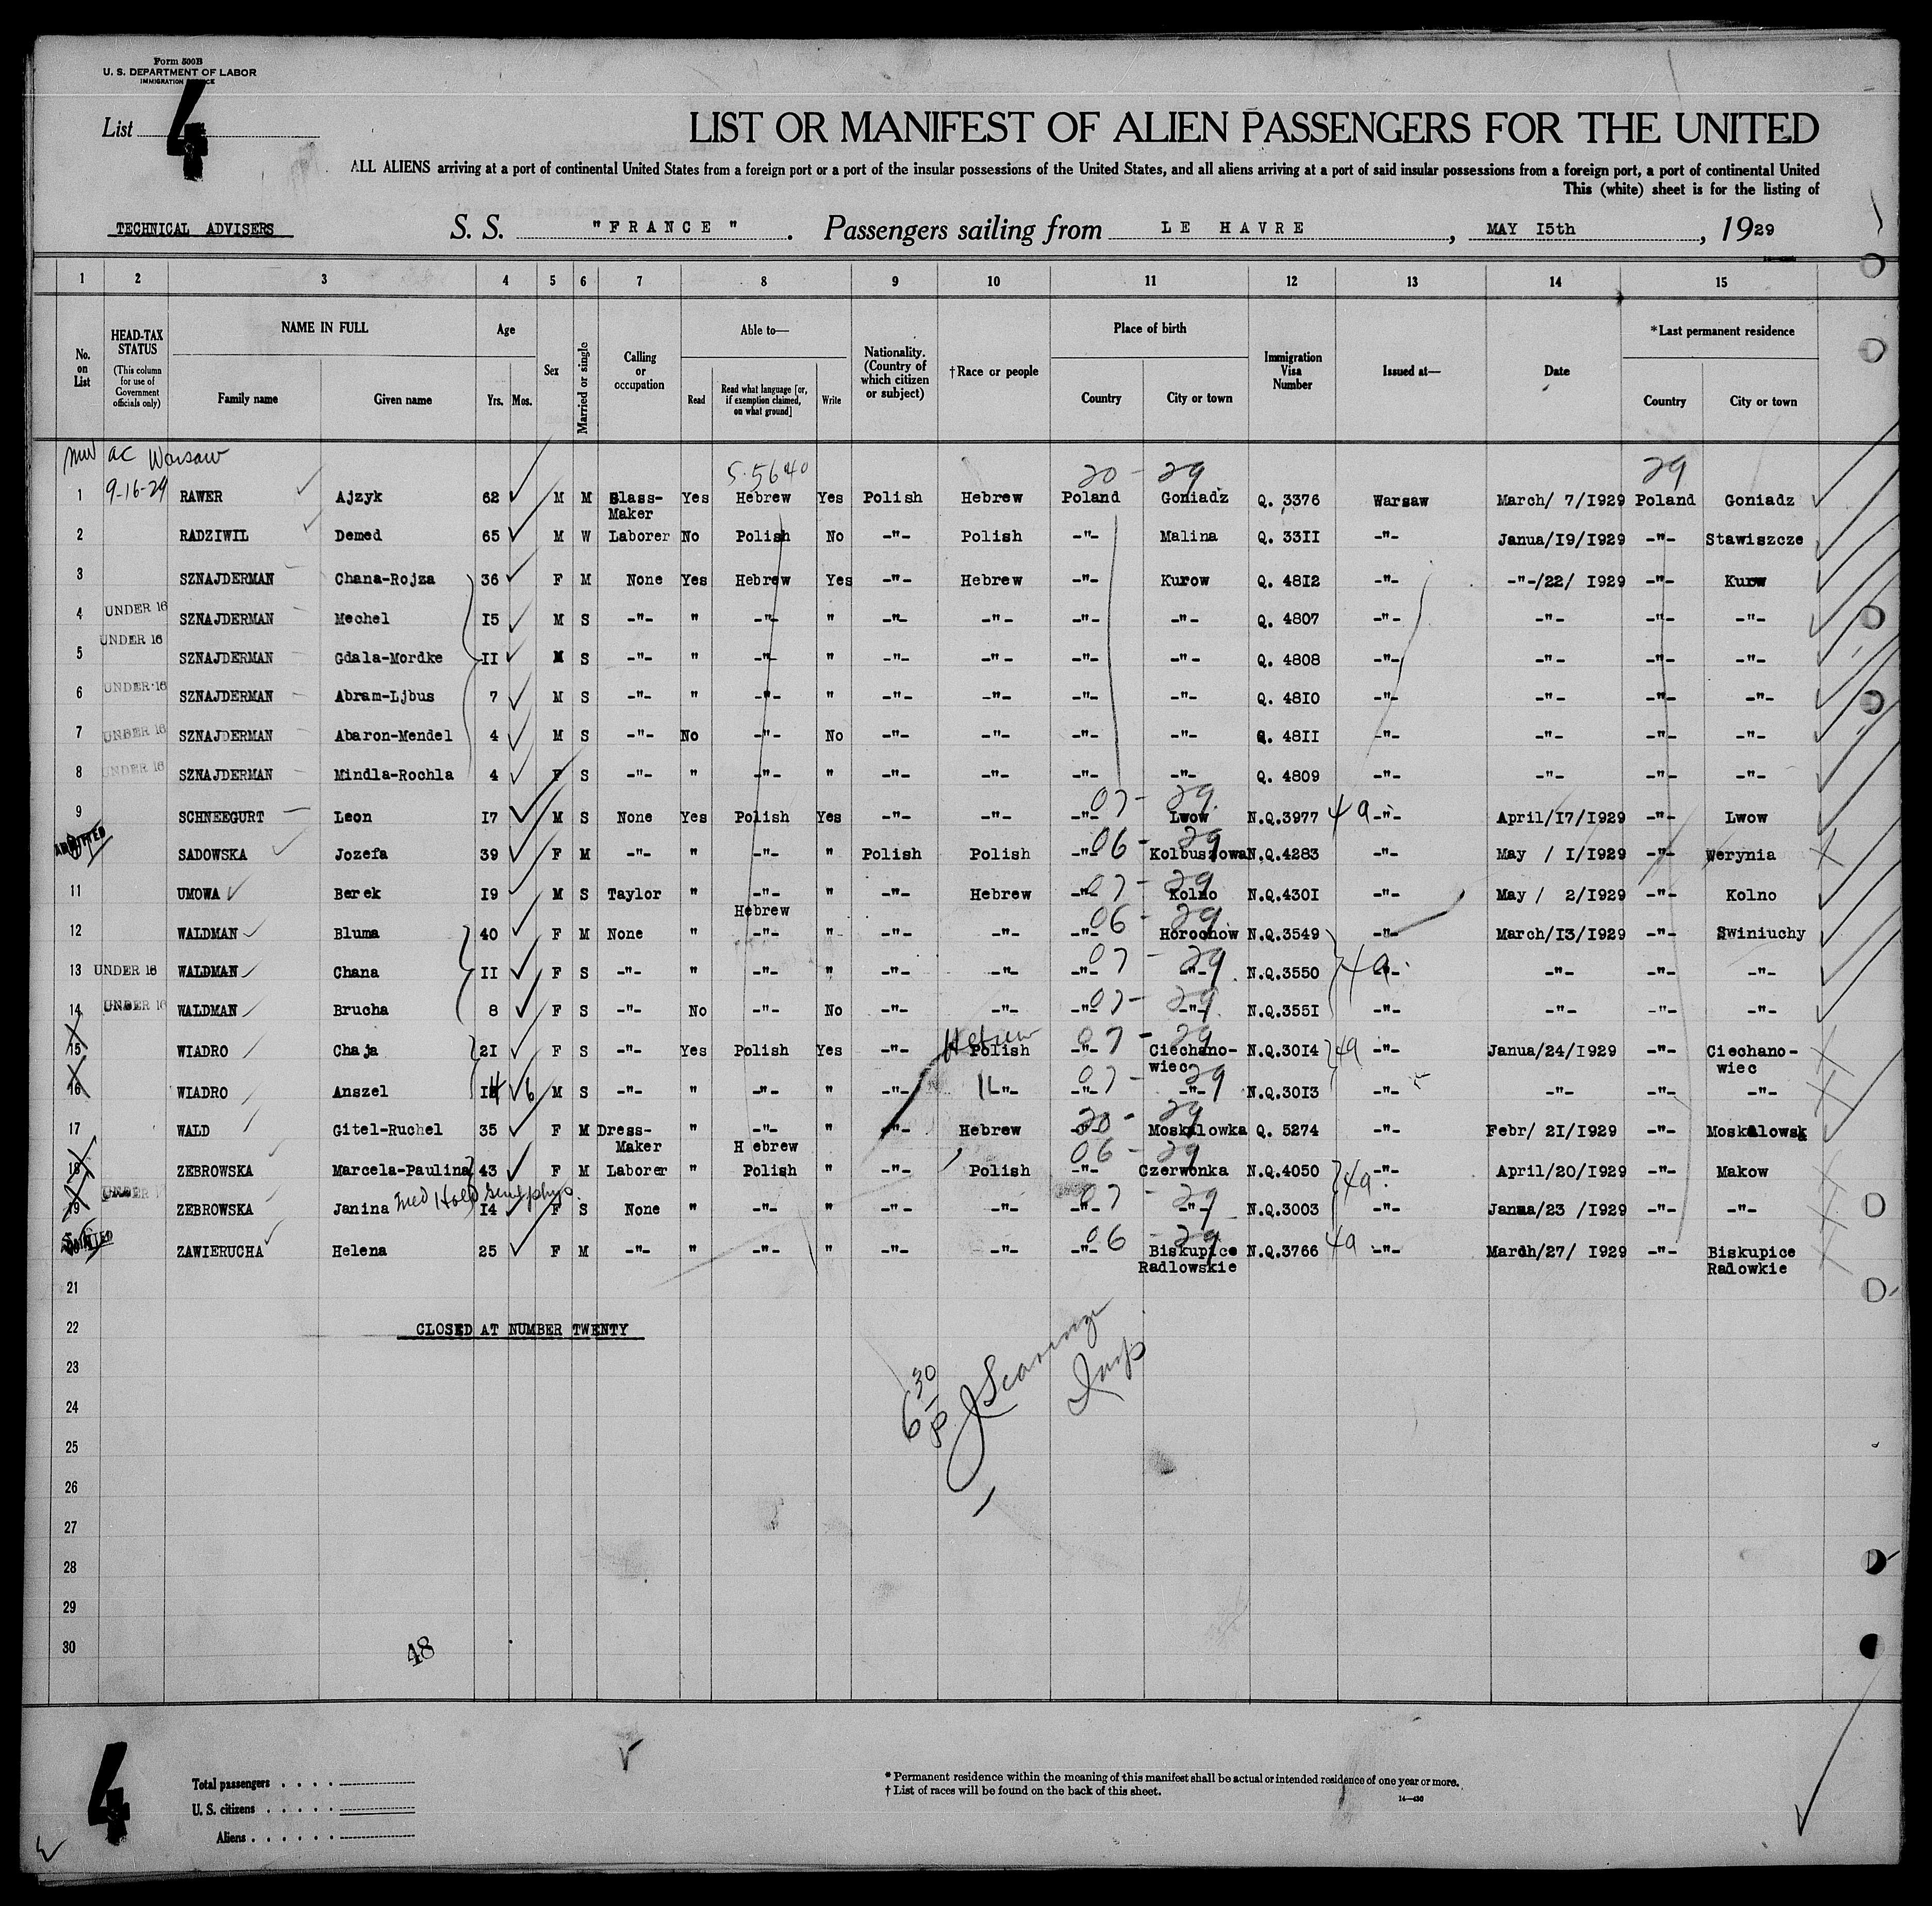 Form 500B
U. S. DEPARTMENT OF LABOR
IMMIGRATION SERVICE
List 4
LIST OR MANIFEST OF ALIEN PASSENGERS FOR THE UNITED
ALL ALIENS arriving at a port of continental United States from a foreign port or a port of the insular possessions of the United States, and all aliens arriving at a port of said insular possessions from a foreign port, a port of continental United
This (white) sheet is for the listing of
TECHNICAL ADVISERS S. S. "FRANCE". Passengers sailing from LE HAVRE, MAY I5th, 1929
1 2 3 4 5 6 7 8 9 10 11 12 13 14 15
No. on List
HEAD-TAX STATUS (This column for use of Government officials only)
NAME IN FULL Family name Given name
Age Yrs. Mos.
Sex
Married or single
Calling or occupation
Able to— Read Read what language [or, if exemption claimed, on what ground] Write
Nationality. (Country of which citizen or subject)
†Race or people
Place of birth Country City or town
Immigration Visa Number
Issued at—
Date
*Last permanent residence Country City or town
ac Warsaw S.5640 20 - 29 29
1 9-16-29 RAWER Ajzyk 62 M M Glass-Maker Yes Hebrew Yes Polish Hebrew Poland Goniadz Q. 3376 Warsaw March/ 7/I929 Poland Goniadz
2 RADZIWIL Demed 65 M W Laborer No Polish No -"- Polish -"- Malina Q. 33II -"- Janua/I9/I929 -"- Stawiszcze
3 SZNAJDERMAN Chana-Rojza 36 F M None Yes Hebrew Yes -"- Hebrew -"- Kurow Q. 48I2 -"- -"-/22/ I929 -"- Kurw
4 UNDER 16 SZNAJDERMAN Mechel I5 M S -"- " -"- " -"- -"- -"- -"- Q. 4807 -"- -"- -"- -"-
5 UNDER 16 SZNAJDERMAN Gdala-Mordke II M S -"- " -"- " -"- -"- -"- -"- Q. 4808 -"- -"- -"- -"-
6 UNDER 16 SZNAJDERMAN Abram-Ljbus 7 M S -"- " -"- " -"- -"- -"- -"- Q. 48I0 -"- -"- -"- -"-
7 UNDER 16 SZNAJDERMAN Abaron-Mendel 4 M S -"- No -"- No -"- -"- -"- -"- Q. 48II -"- -"- -"- -"-
8 UNDER 16 SZNAJDERMAN Mindla-Rochla 4 F S -"- " -"- " -"- -"- -"- -"- Q. 4809 -"- -"- -"- -"-
07 - 29
9 SCHNEEGURT Leon I7 M S None Yes Polish Yes -"- -"- -"- Lwow N.Q.3977 4a -"- April/I7/I929 -"- Lwow
06 - 29
ADMITTED SADOWSKA Jozefa 39 F M -"- " -"- " Polish Polish -"- Kolbuszowa N.Q.4283 -"- May / I/I929 -"- Werynia
07 - 29
11 UMOWA Berek I9 M S Taylor " -"- Hebrew " -"- Hebrew -"- Kolno N.Q.430I -"- May / 2/I929 -"- Kolno
06 - 29
12 WALDMAN Bluma 40 F M None " -"- " -"- -"- -"- Horochow N.Q.3549 -"- March/I3/I929 -"- Swiniuchy
07 - 29
13 UNDER 16 WALDMAN Chana II F S -"- " -"- " -"- -"- -"- -"- N.Q.3550 4a -"- -"- -"- -"-
07 - 29
14 UNDER 16 WALDMAN Brucha 8 F S -"- No -"- No -"- -"- -"- -"- N.Q.355I -"- -"- -"-
Hebrew 07 - 29
15 WIADRO Chaja 2I F S -"- Yes Polish Yes -"- Polish -"- Ciechano-wiec N.Q.30I4 4a -"- Janua/24/I929 -"- Ciechano-wiec
07 - 29
16 WIADRO Anszel I4 6 M S -"- " -"- " -"- -"- -"- -"- N.Q.30I3 -"- -"- -"- -"-
20 - 29
17 WALD Gitel-Ruchel 35 F M Dress-Maker " -"- Hebrew " -"- Hebrew -"- Moskalowka Q. 5274 -"- Febr/ 2I/I929 -"- Moskalowsk
06 - 29
18 ZEBROWSKA Marcela-Paulina 43 F M Laborer " Polish " -"- Polish -"- Czerwonka N.Q.4050 4a -"- April/20/I929 -"- Makow
07 - 29
19 UNDER ZEBROWSKA Janina Med Hold I4 F S None " -"- " -"- -"- -"- -"- N.Q.3003 -"- Janua/23 /I929 -"- -"-
06 - 29
ADMITTED ZAWIERUCHA Helena 25 F M -"- " -"- " -"- -"- -"- Biskupice Radlowskie N.Q.3766 4a -"- March/27/ I929 -"- Biskupice Radowkie
21
22 CLOSED AT NUMBER TWENTY
23
24 6 30 P
Insp
25
26
27
28
29
30
48
4
Total passengers
U. S. citizens
Aliens
* Permanent residence within the meaning of this manifest shall be actual or intended residence of one year or more.
† List of races will be found on the back of this sheet.
14—430